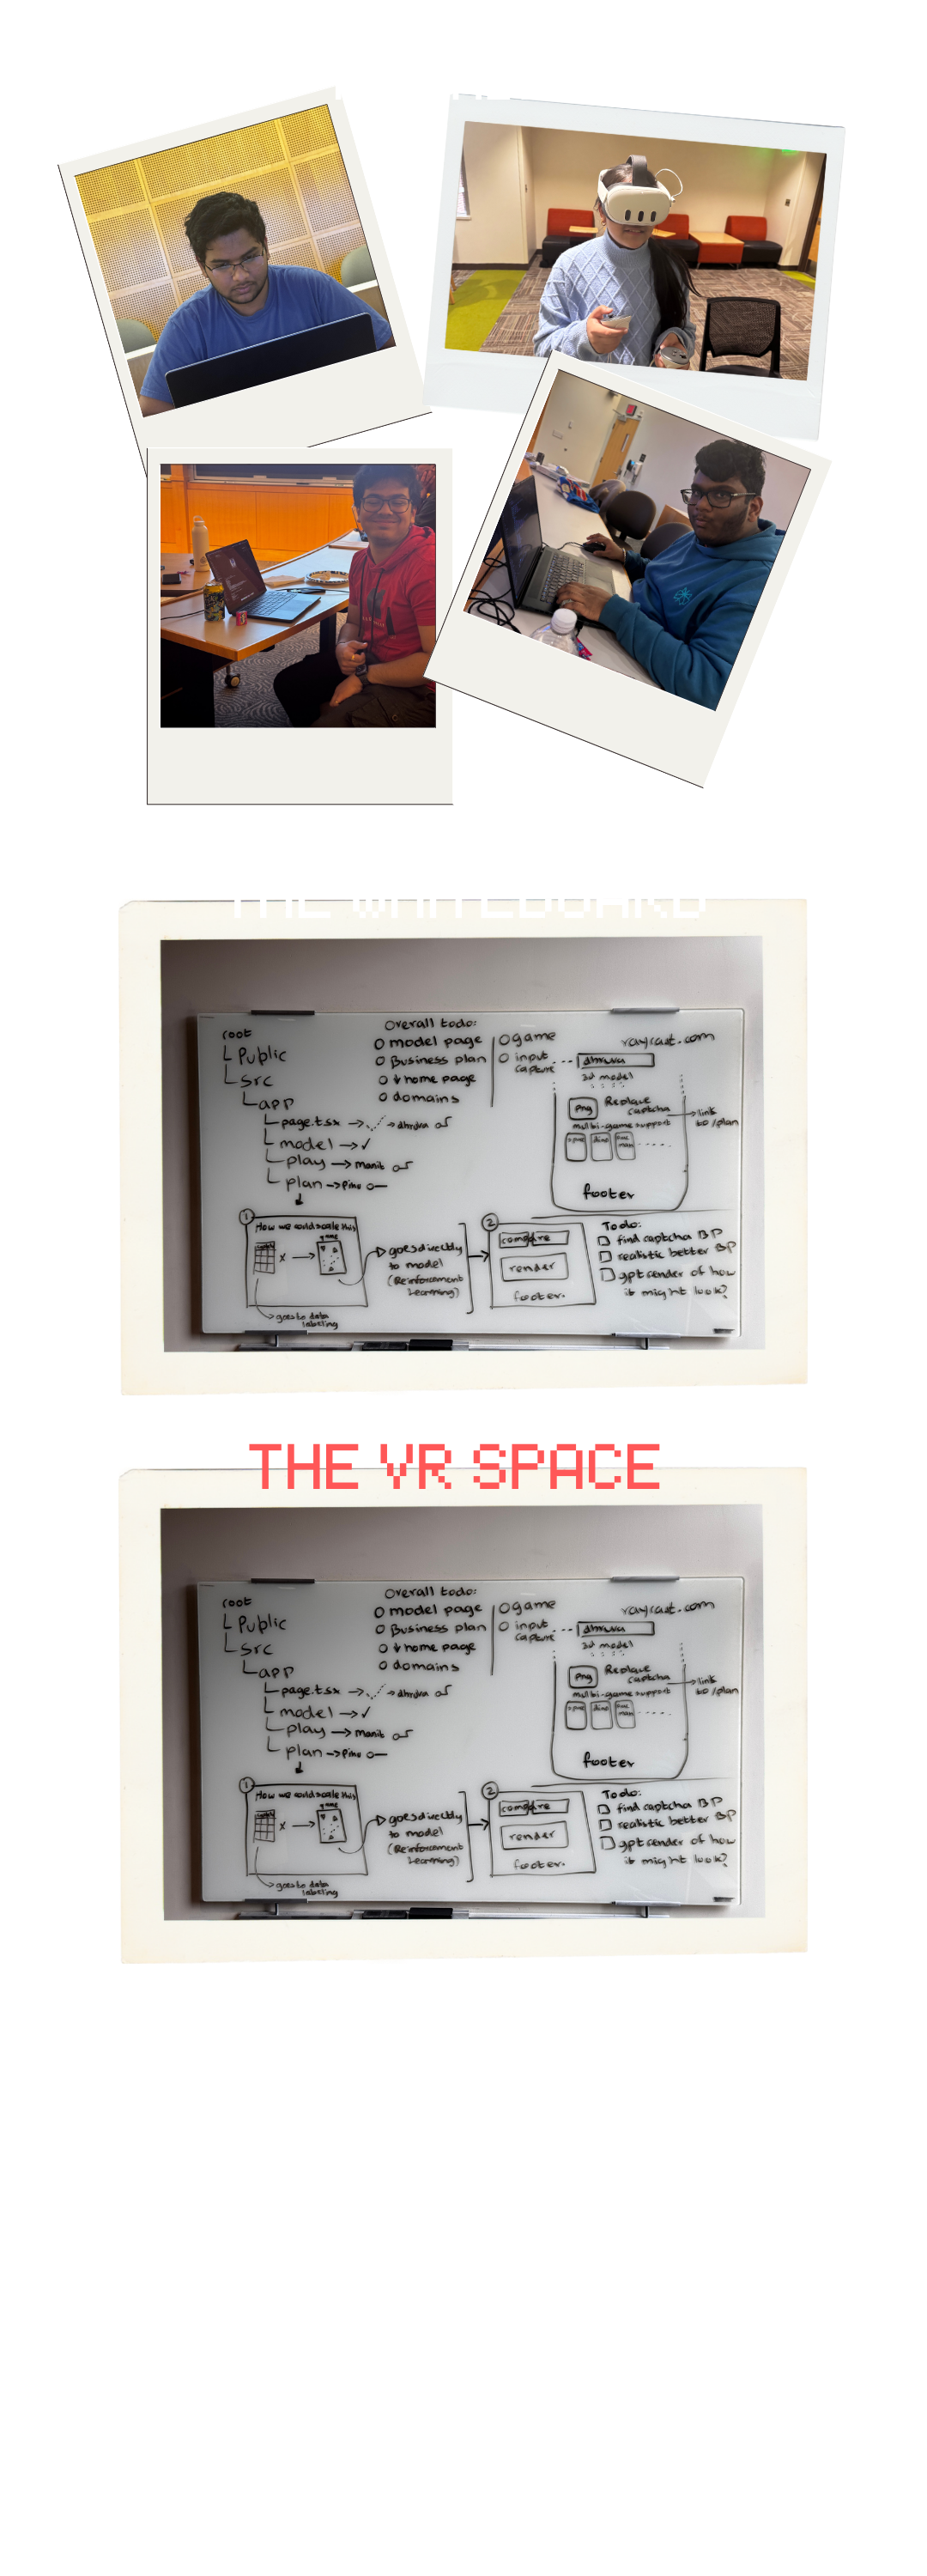 THE WHITEBOARD
root
Public
src
app
page.tsx
model
play → manit
plan
Overall todo:
model page
Business plan
home page
domains
game
input capture
3d model
png
Replace captcha
link to /plan
multi-game support
footer
1
How we could scale this
game
goes to data labeling
goes directly
to model
(Reinforcement
Learning)
2
compare
render
footer.
Todo:
find captcha BP
realistic better BP
gpt render of how
it might look?
THE VR SPACE
root
Public
src
app
page.tsx
model
play → manit
plan
Overall todo:
model page
Business plan
home page
domains
game
input capture
3d model
png
Replace captcha
link to /plan
multi-game support
footer
1
How we could scale this
game
goes to data labeling
goes directly
to model
(Reinforcement
Learning)
2
compare
render
footer.
Todo:
find captcha BP
realistic better BP
gpt render of how
it might look?